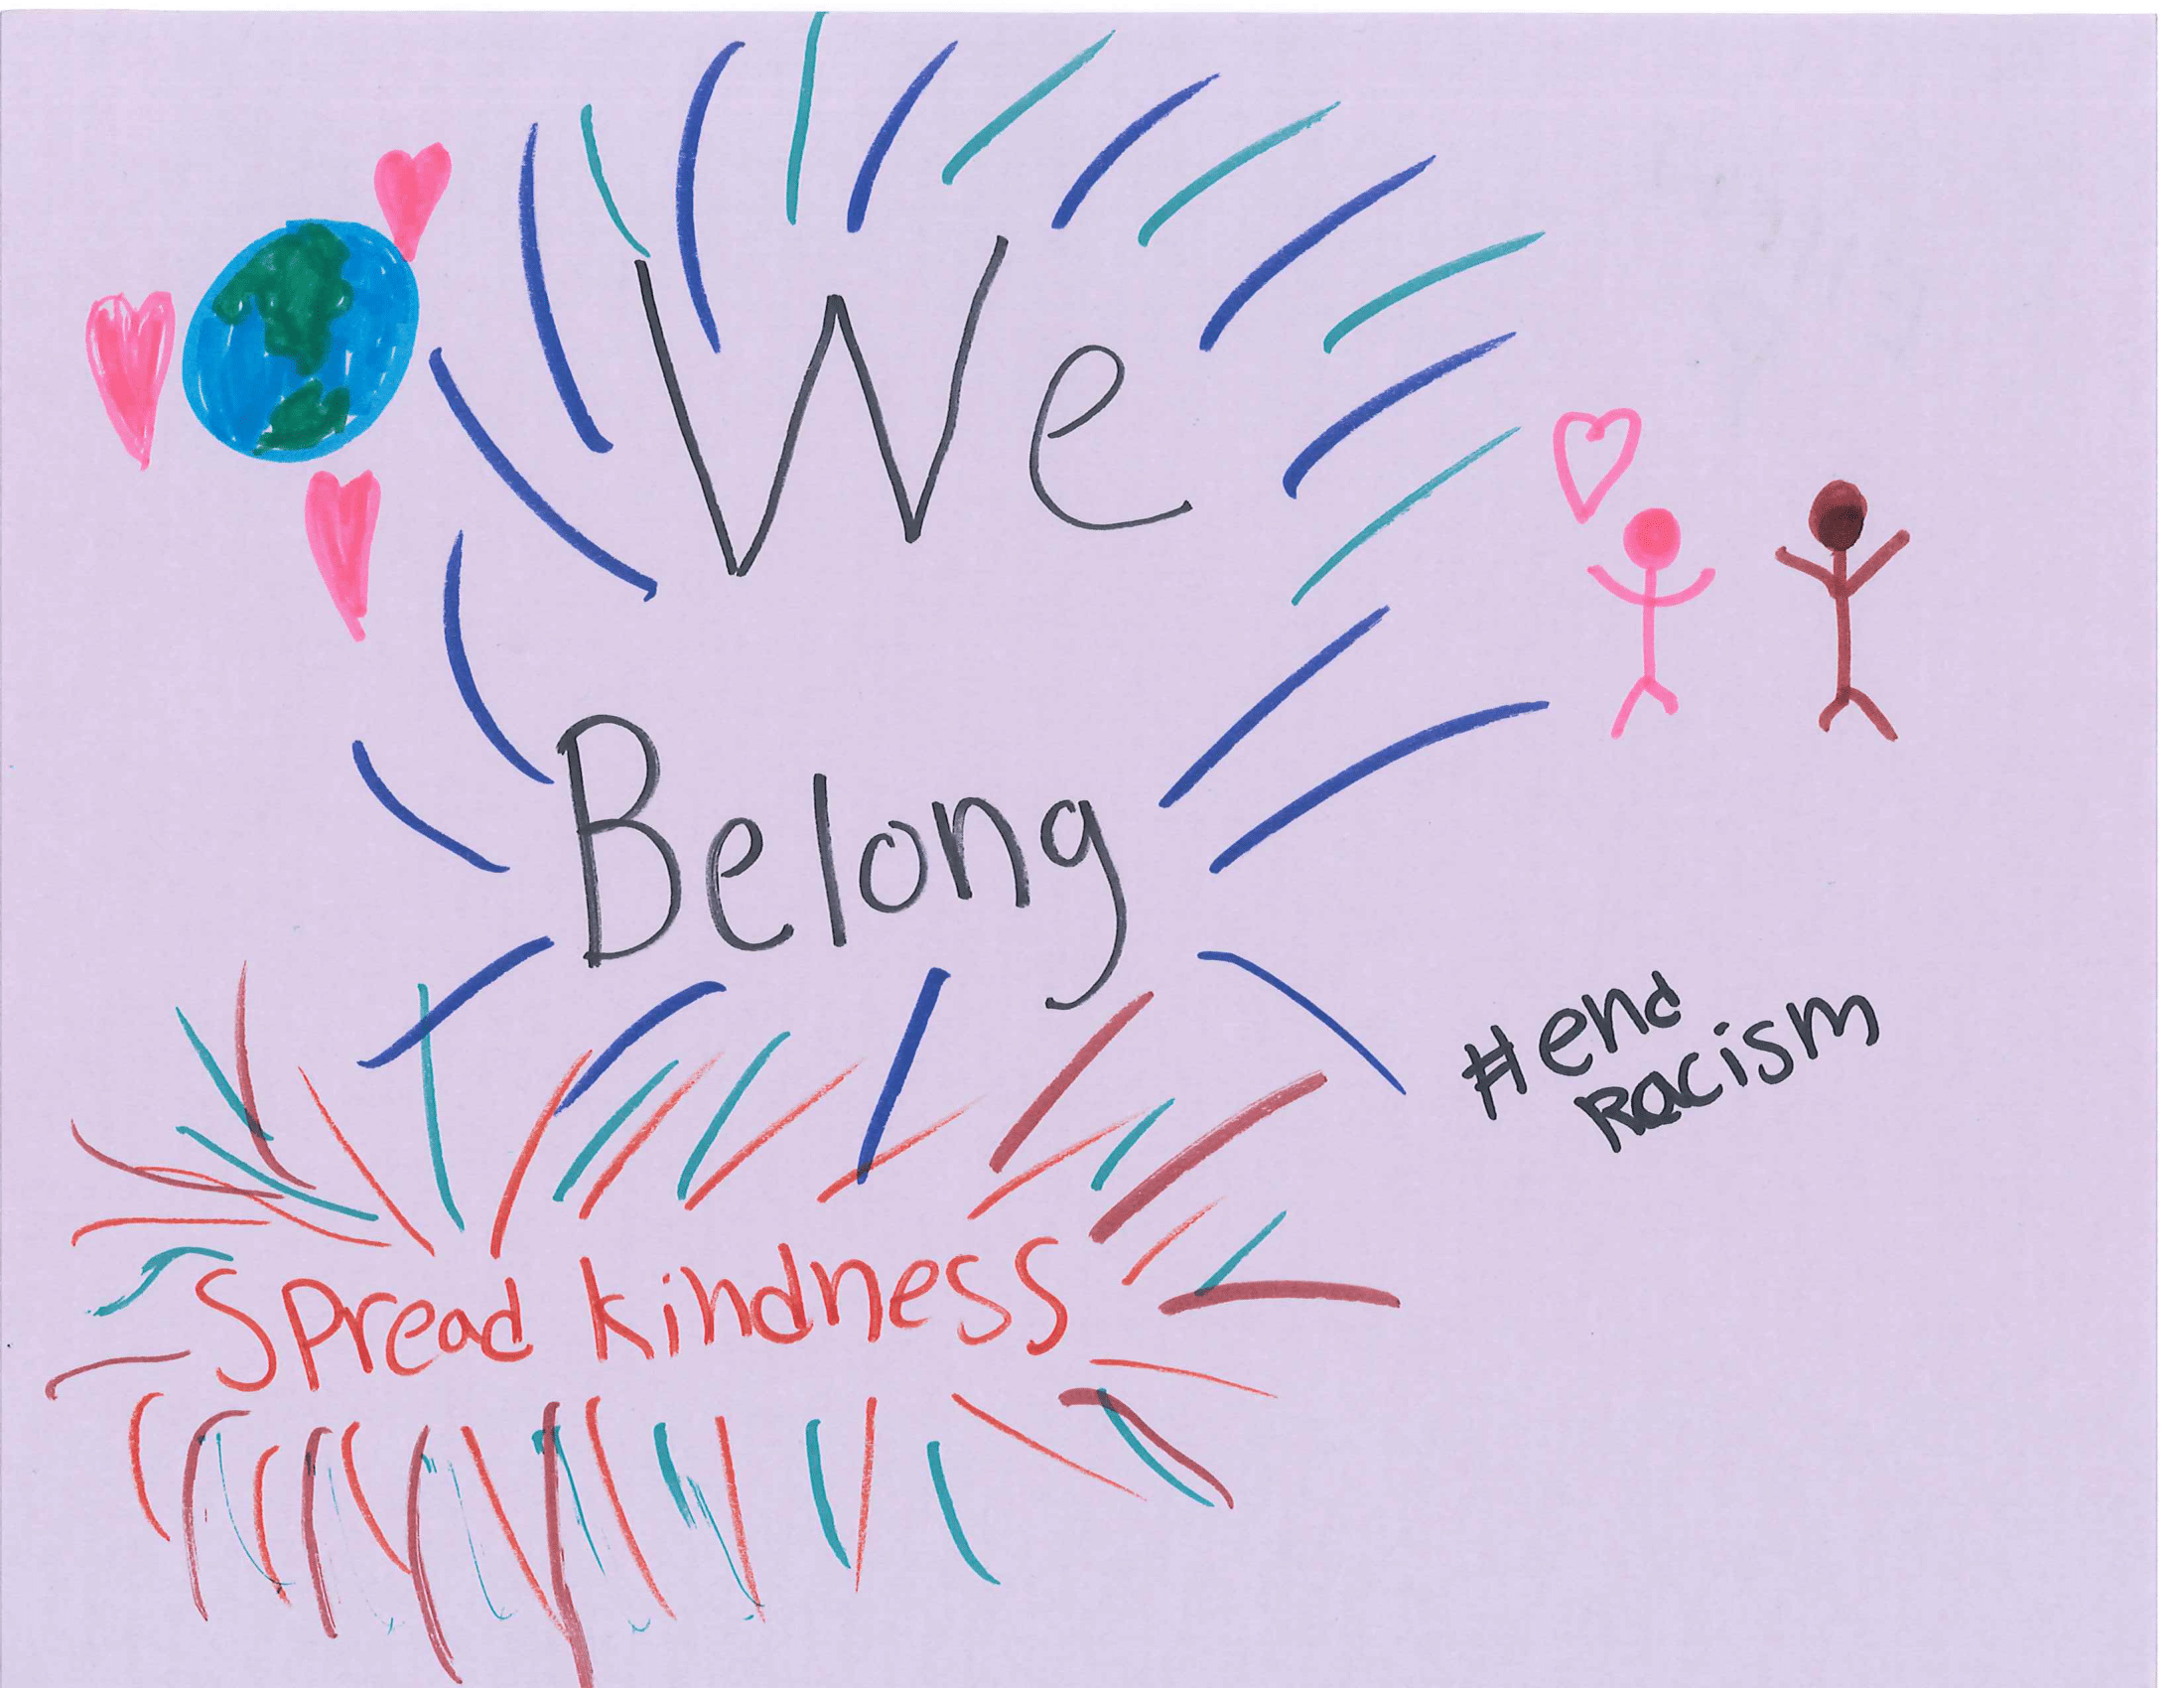 We
Belong
#end
Racism
Spread kindness